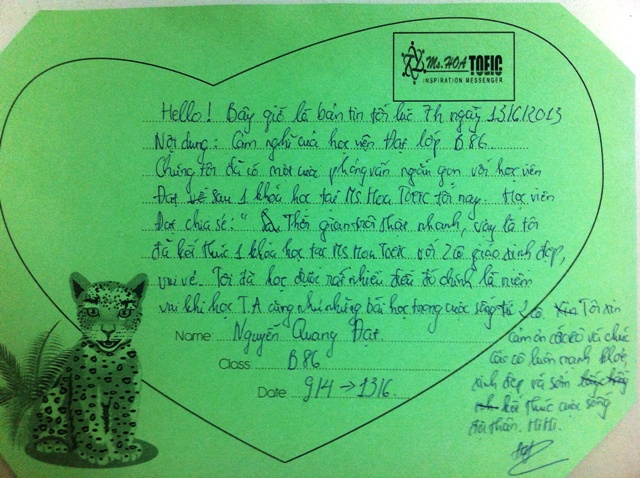 Ms. HOA TOEIC
INSPIRATION MESSENGER
Hello! Bây giờ là bản tin tối lúc 7h ngày 13/6/2013
Nội dung: Cảm nghĩ của học viên Đạt lớp B86.
Chúng tôi đã có một cuộc phỏng vấn ngắn gọn với học viên
Đạt về sau 1 khóa học tại Ms Hoa Toeic tối nay. Học viên
Đạt chia sẻ: " Thời gian trôi thật nhanh, vậy là tôi
đã kết thúc 1 khóa học tại Ms Hoa Toeic với 2 cô giáo xinh đẹp,
vui vẻ. Tôi đã học được rất nhiều điều đó chính là niềm
vui khi học T.A cũng như những bài học trong cuộc sống từ 2 cô. Tôi xin
cảm ơn các cô và chúc
các cô luôn mạnh khỏe,
xinh đẹp và sớm
kết thúc cuộc sống
độc thân. HiHi.
Name: Nguyễn Quang Đạt.
Class: B86
Date 9/4 → 13/6.